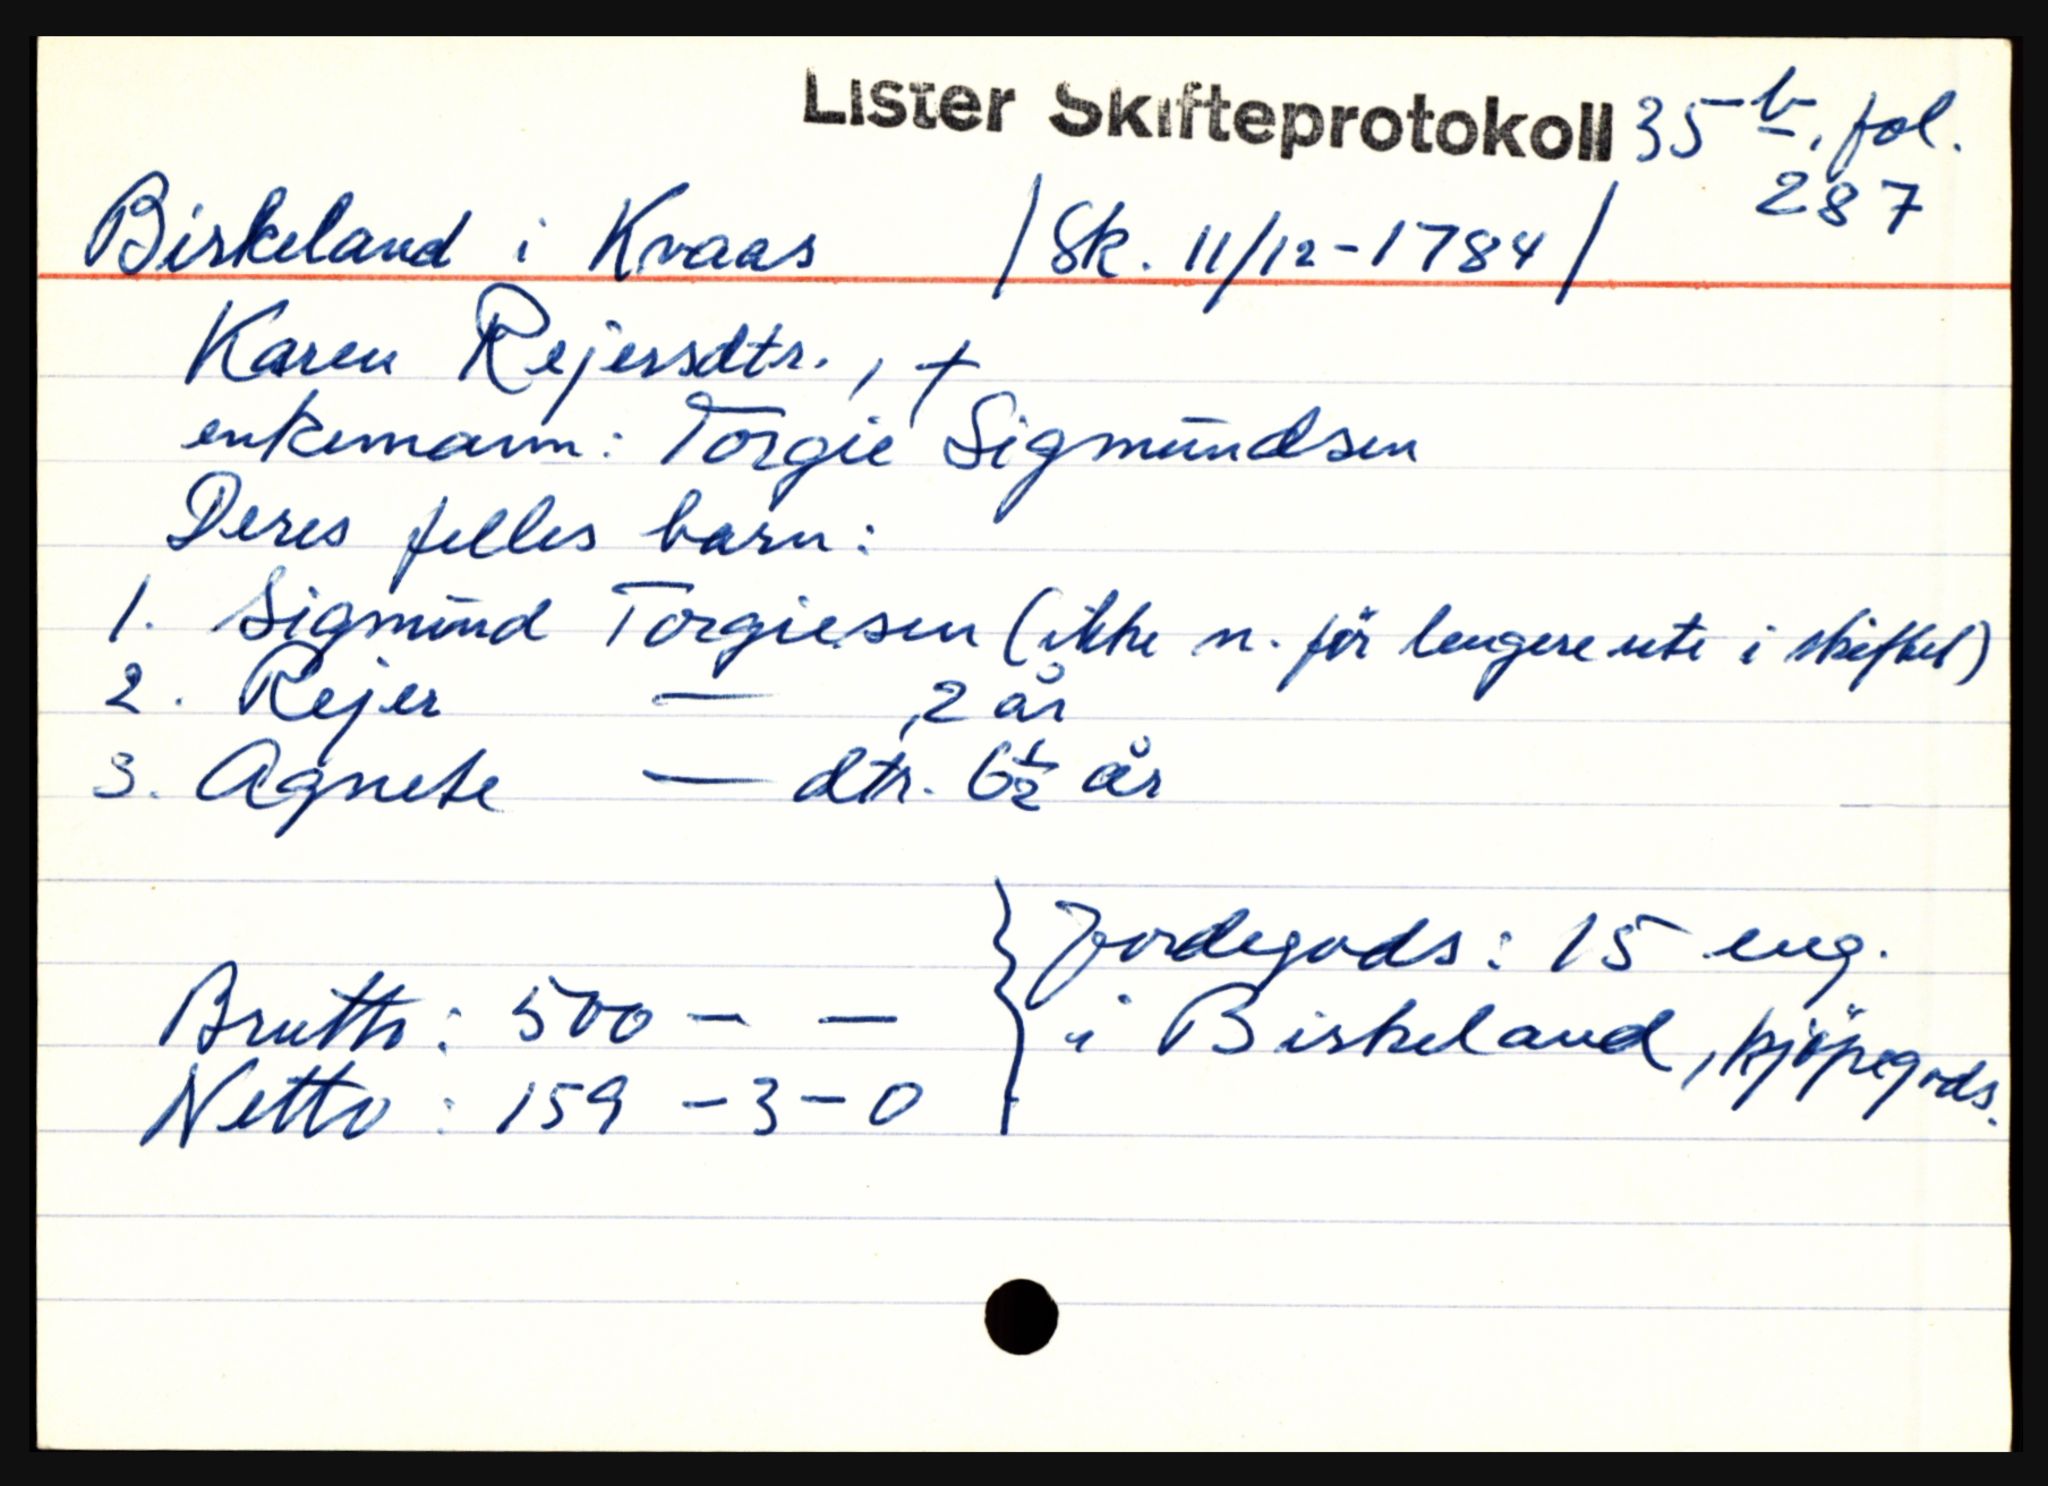 Lister Skifteprotokoll 35 b, fol.
287
Birkeland i Kvaas /Sk. 11/12-1784/
Karen Rejersdtr., +
enkemann: Torgie Sigmundsen
Deres felles barn:
1. Sigmund Torgiesen (ikke n. för lengere ute i skiftet)
2. Rejer — , 2 år
3. Agnete — dtr. 6½ år
Jordegods: 15 eng.
Brutto: 500 — —
i Birkeland, kjöpegods.
Netto: 159 - 3 - 0